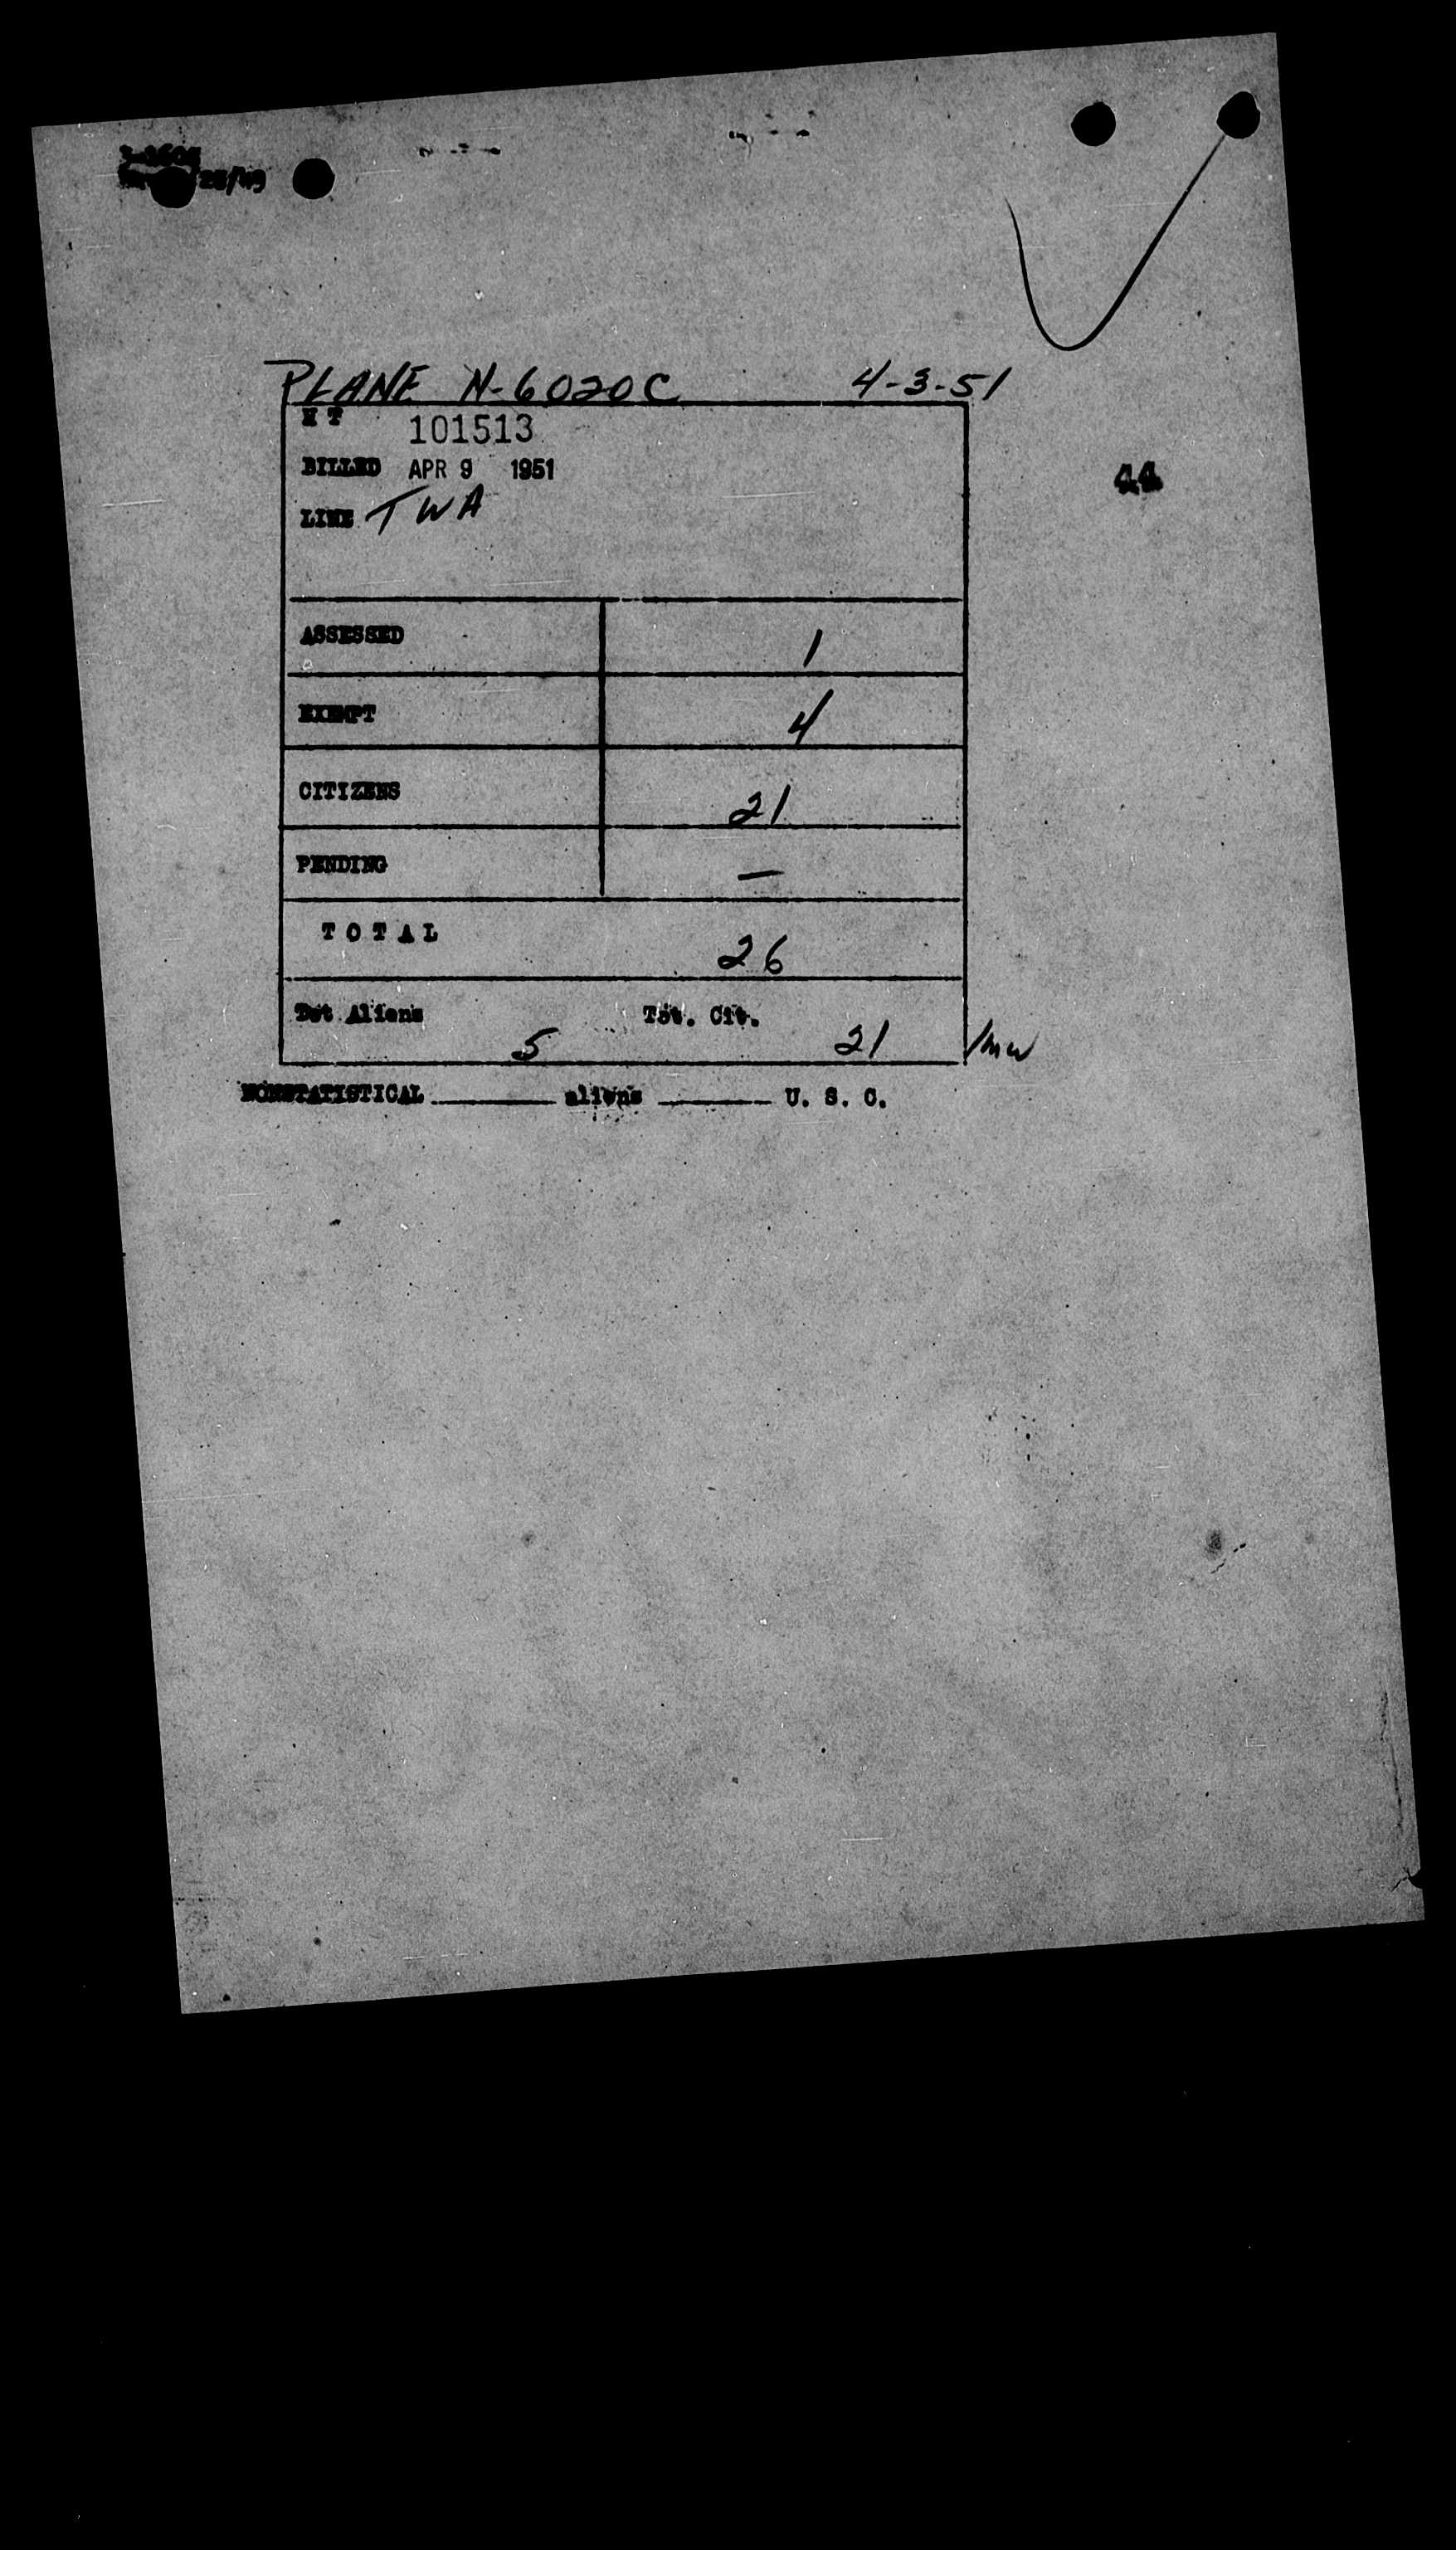 PLANE N-6020C 4-3-51
H T 101513
BILLED APR 9 1951
LINE TWA
44
ASSESSED 1
EXEMPT 4
CITIZENS 21
PENDING —
TOTAL 26
Tot Aliens 5 Tot. Cit. 21 /mw
NONSTATISTICAL ______ aliens ______ U. S. C.